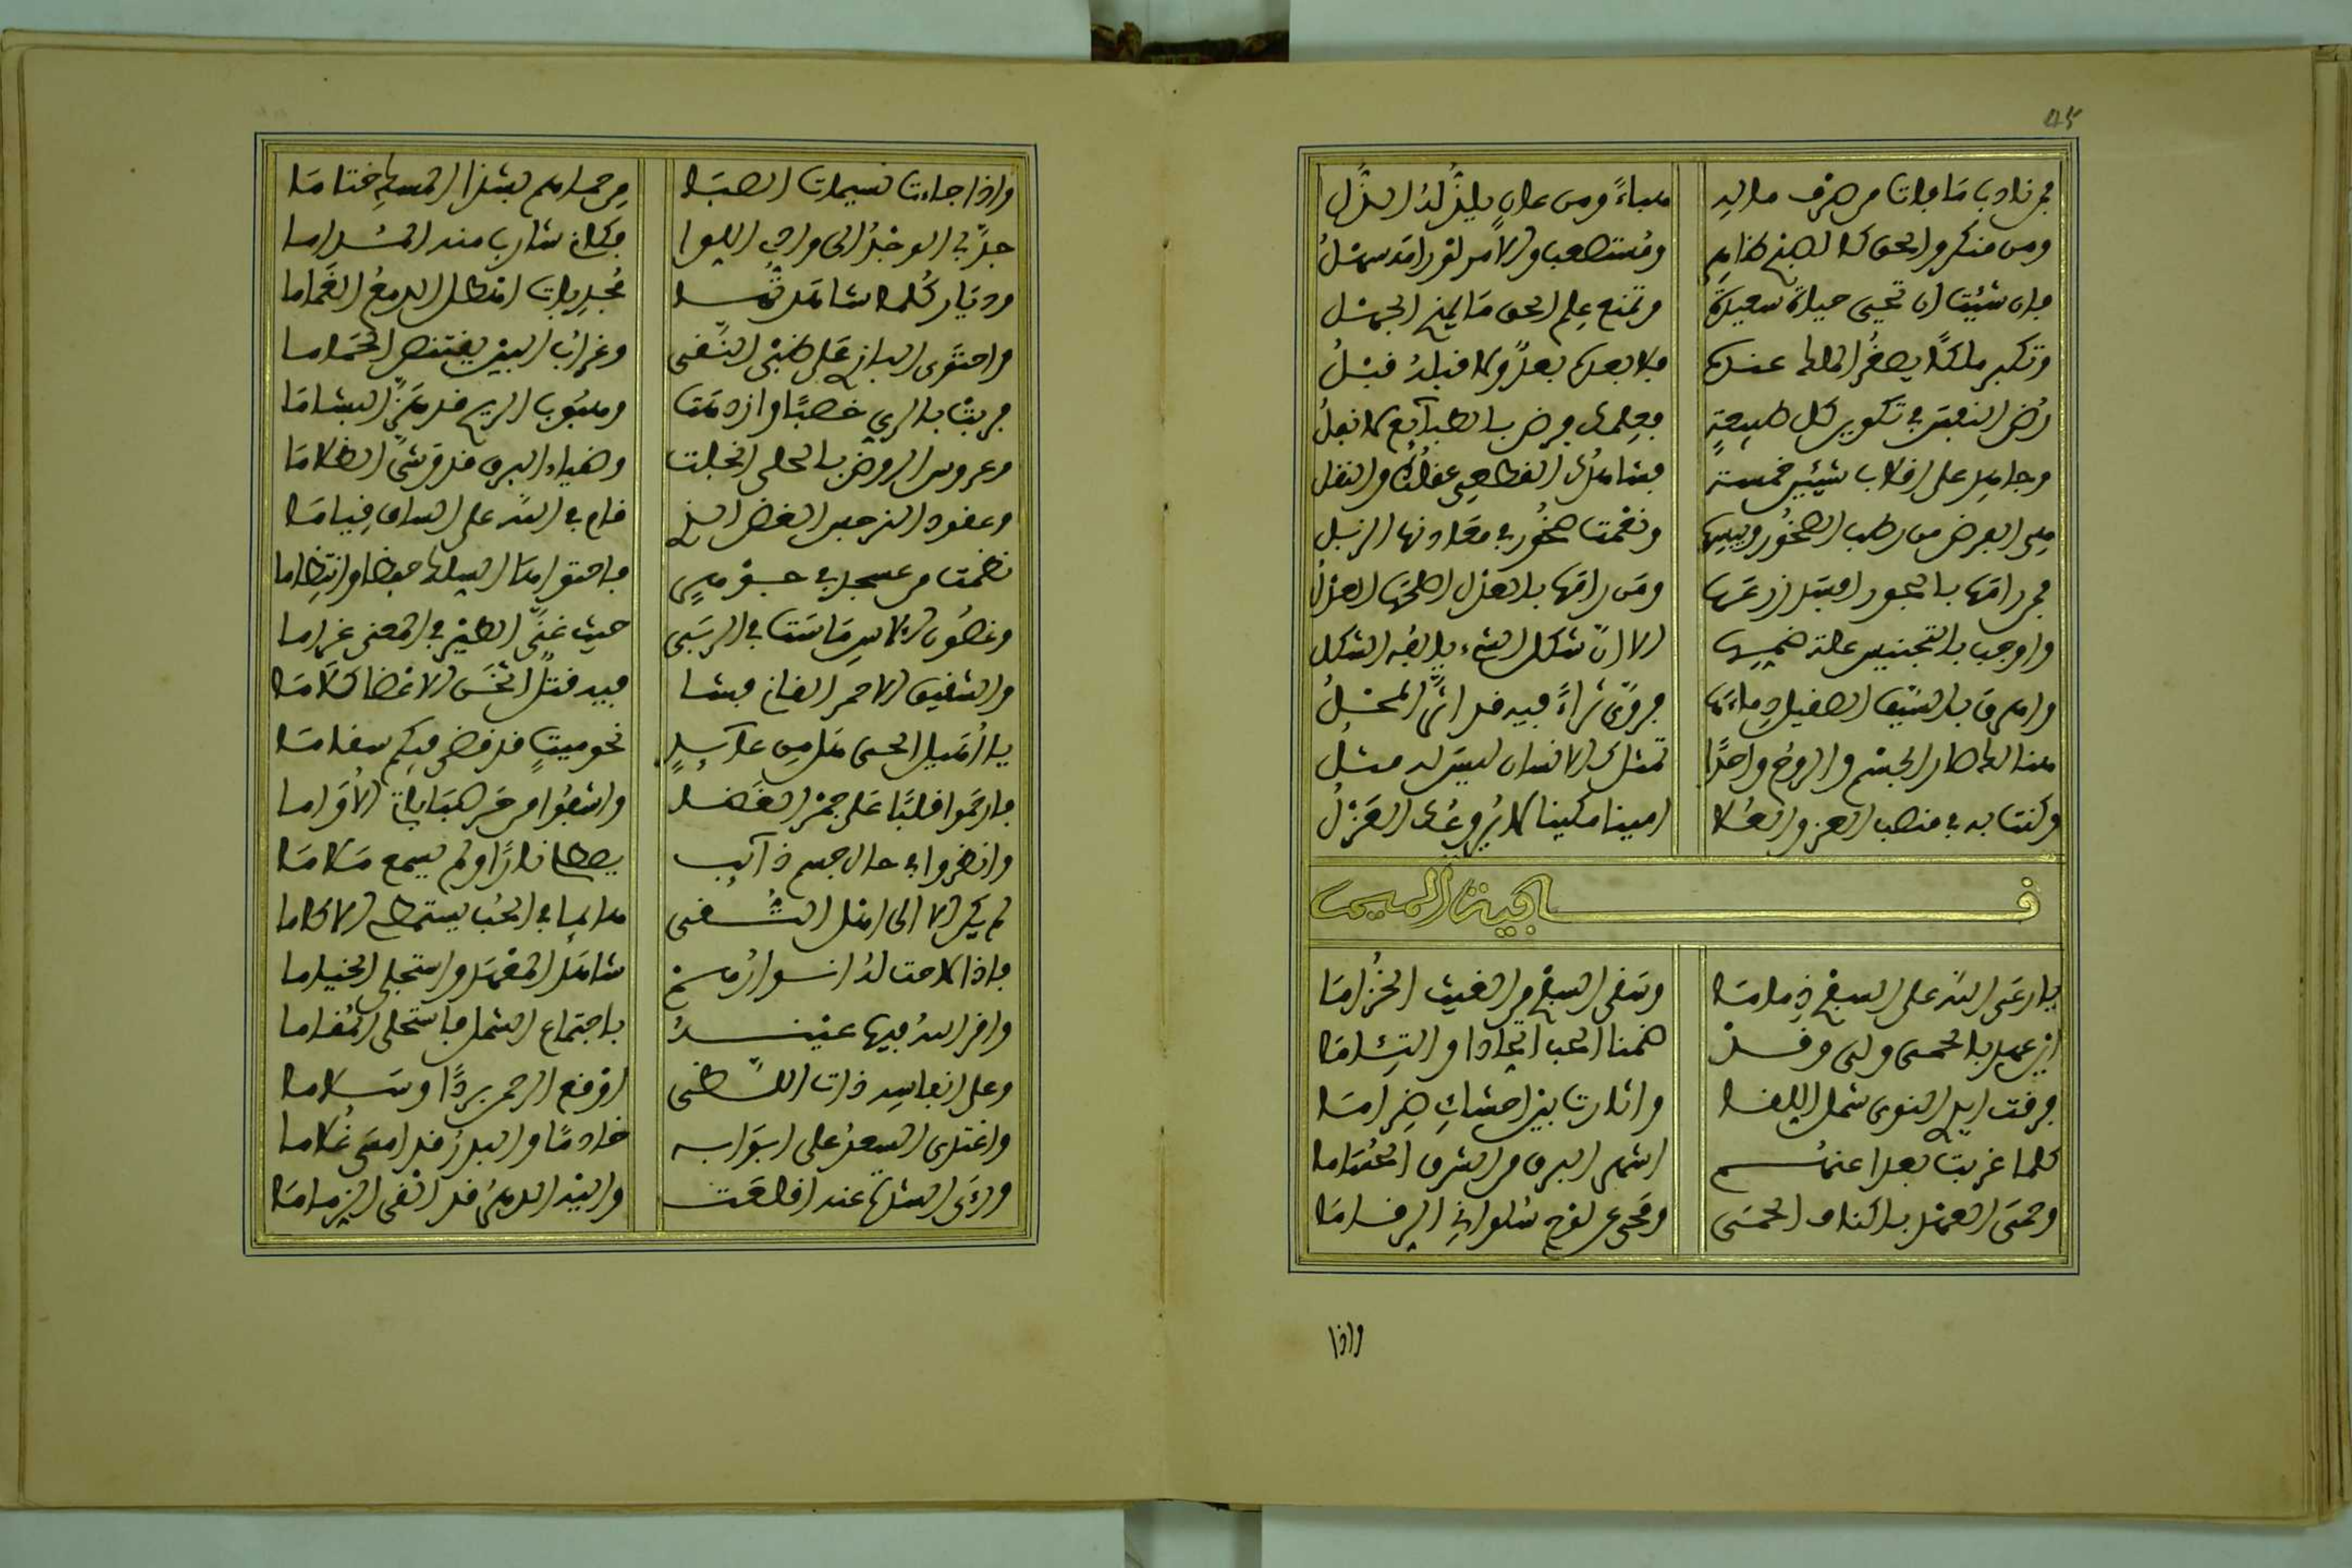 45
فمن ذاد بما فات من صرف ماله هباءً ومن عان يلذ له البذل
ومن منكر والحق كالصبح ظاهر ومستصعب والأمر لو رامه سهل
فان شئت ان تحيى حياة سعيدة وتمنع علم الحق ما يمنح الجهل
وتكبر ملكا يصغر الملك عنده فلا بعده بعد ولا قبله قبل
رض النفس في تكوين كل طبيعة فعلمك من بالطبائع لا تغل
وجامل على افلاب شيئين خمسة فشاهدك القطعي عقلك والنقل
هي الارض من رطب الصخور ويبسها ونغمت صخور في معادنها الزبل
فمن رامها بالجور اهبل زرعها ومن رامها بالعدل اصلحها العدل
واوجب بالتجنيس علة ضميها الا ان شكل الشيء يالفه الشكل
واهرق بالسيف الصقيل دماءها فروى ثراءً فيه قد اثر المحل
هنالك صار الجسم والروح واحدا تمثل كالانسان ليس له مثل
وكنت به في منصب العز والعلا امينا مكينا لا يروعك العزل
قافية الميم
يا رعى الله على السفح ذماما وسقى السفح من الغيث الخزاما
اين عهد بالحمى ولى وقد ضمنا الحب اتحادا والتئاما
فرقت ايدي النوى شمل اللقا واثارت بين احشاي ضراما
كلما غربت بعدا عنهم اشهر البرق من الشرق الحساما
وحمى العهد باكناف الحمى ومحى عن لوح سلواني الرقاما
واذا
واذا جاءت نسيمات الصبا من حماهم بشذا المسك ختاما
جد بي الوجد الى وادي اللوا فكان شارب منه المداما
وديار كلما شاهدتها مجدبات امطر الدمع الغماما
واحتوى البازي على ظبي النقى وغراب البين يقتنص الحماما
مربت بالري خصبا وازدهت وهبوب الريح قد هز البشاما
وعروس الروض بالحلي انجلت وضياء البرق قد وشى الظلاما
وعقود النرجس الغض الذي قام في الله على الساق قياما
نظمت من عسجد في جوهر فاحتواها السلك حفظا وانتظاما
وغصون الاس ماست في الربى حيث غنى الطير في المغنى غراما
والشقيق الاحمر القاني فشا فيه قتل اثخن الاعضا كلاما
يا اهيل الحي هل من عائد نحو ميت قد قضى فيكم سقاما
فارحموا قلبا على جمر الغضا واشفوا من حر صبابات الاواما
وانظروا في حال جسم ذائب يصطلي نارا ولم يسمع ملاما
لم يكن الا الى اهل الشقى هائما في الحب يستمطي الاكاما
فاذا لاحت له انوارهم شاهد المعهد واستجلى الخياما
واقر الله فيها عينه باجتماع الشمل فاستحلى المقاما
وعلى انفاسه ذات اللظى اوقع الرحمن بردا وسلاما
واغتدى السعد على ابوابه خادما والبدر قد امسى غلاما
وراى الشدة عنه اقلعت واليه الدهر قد القى الزماما